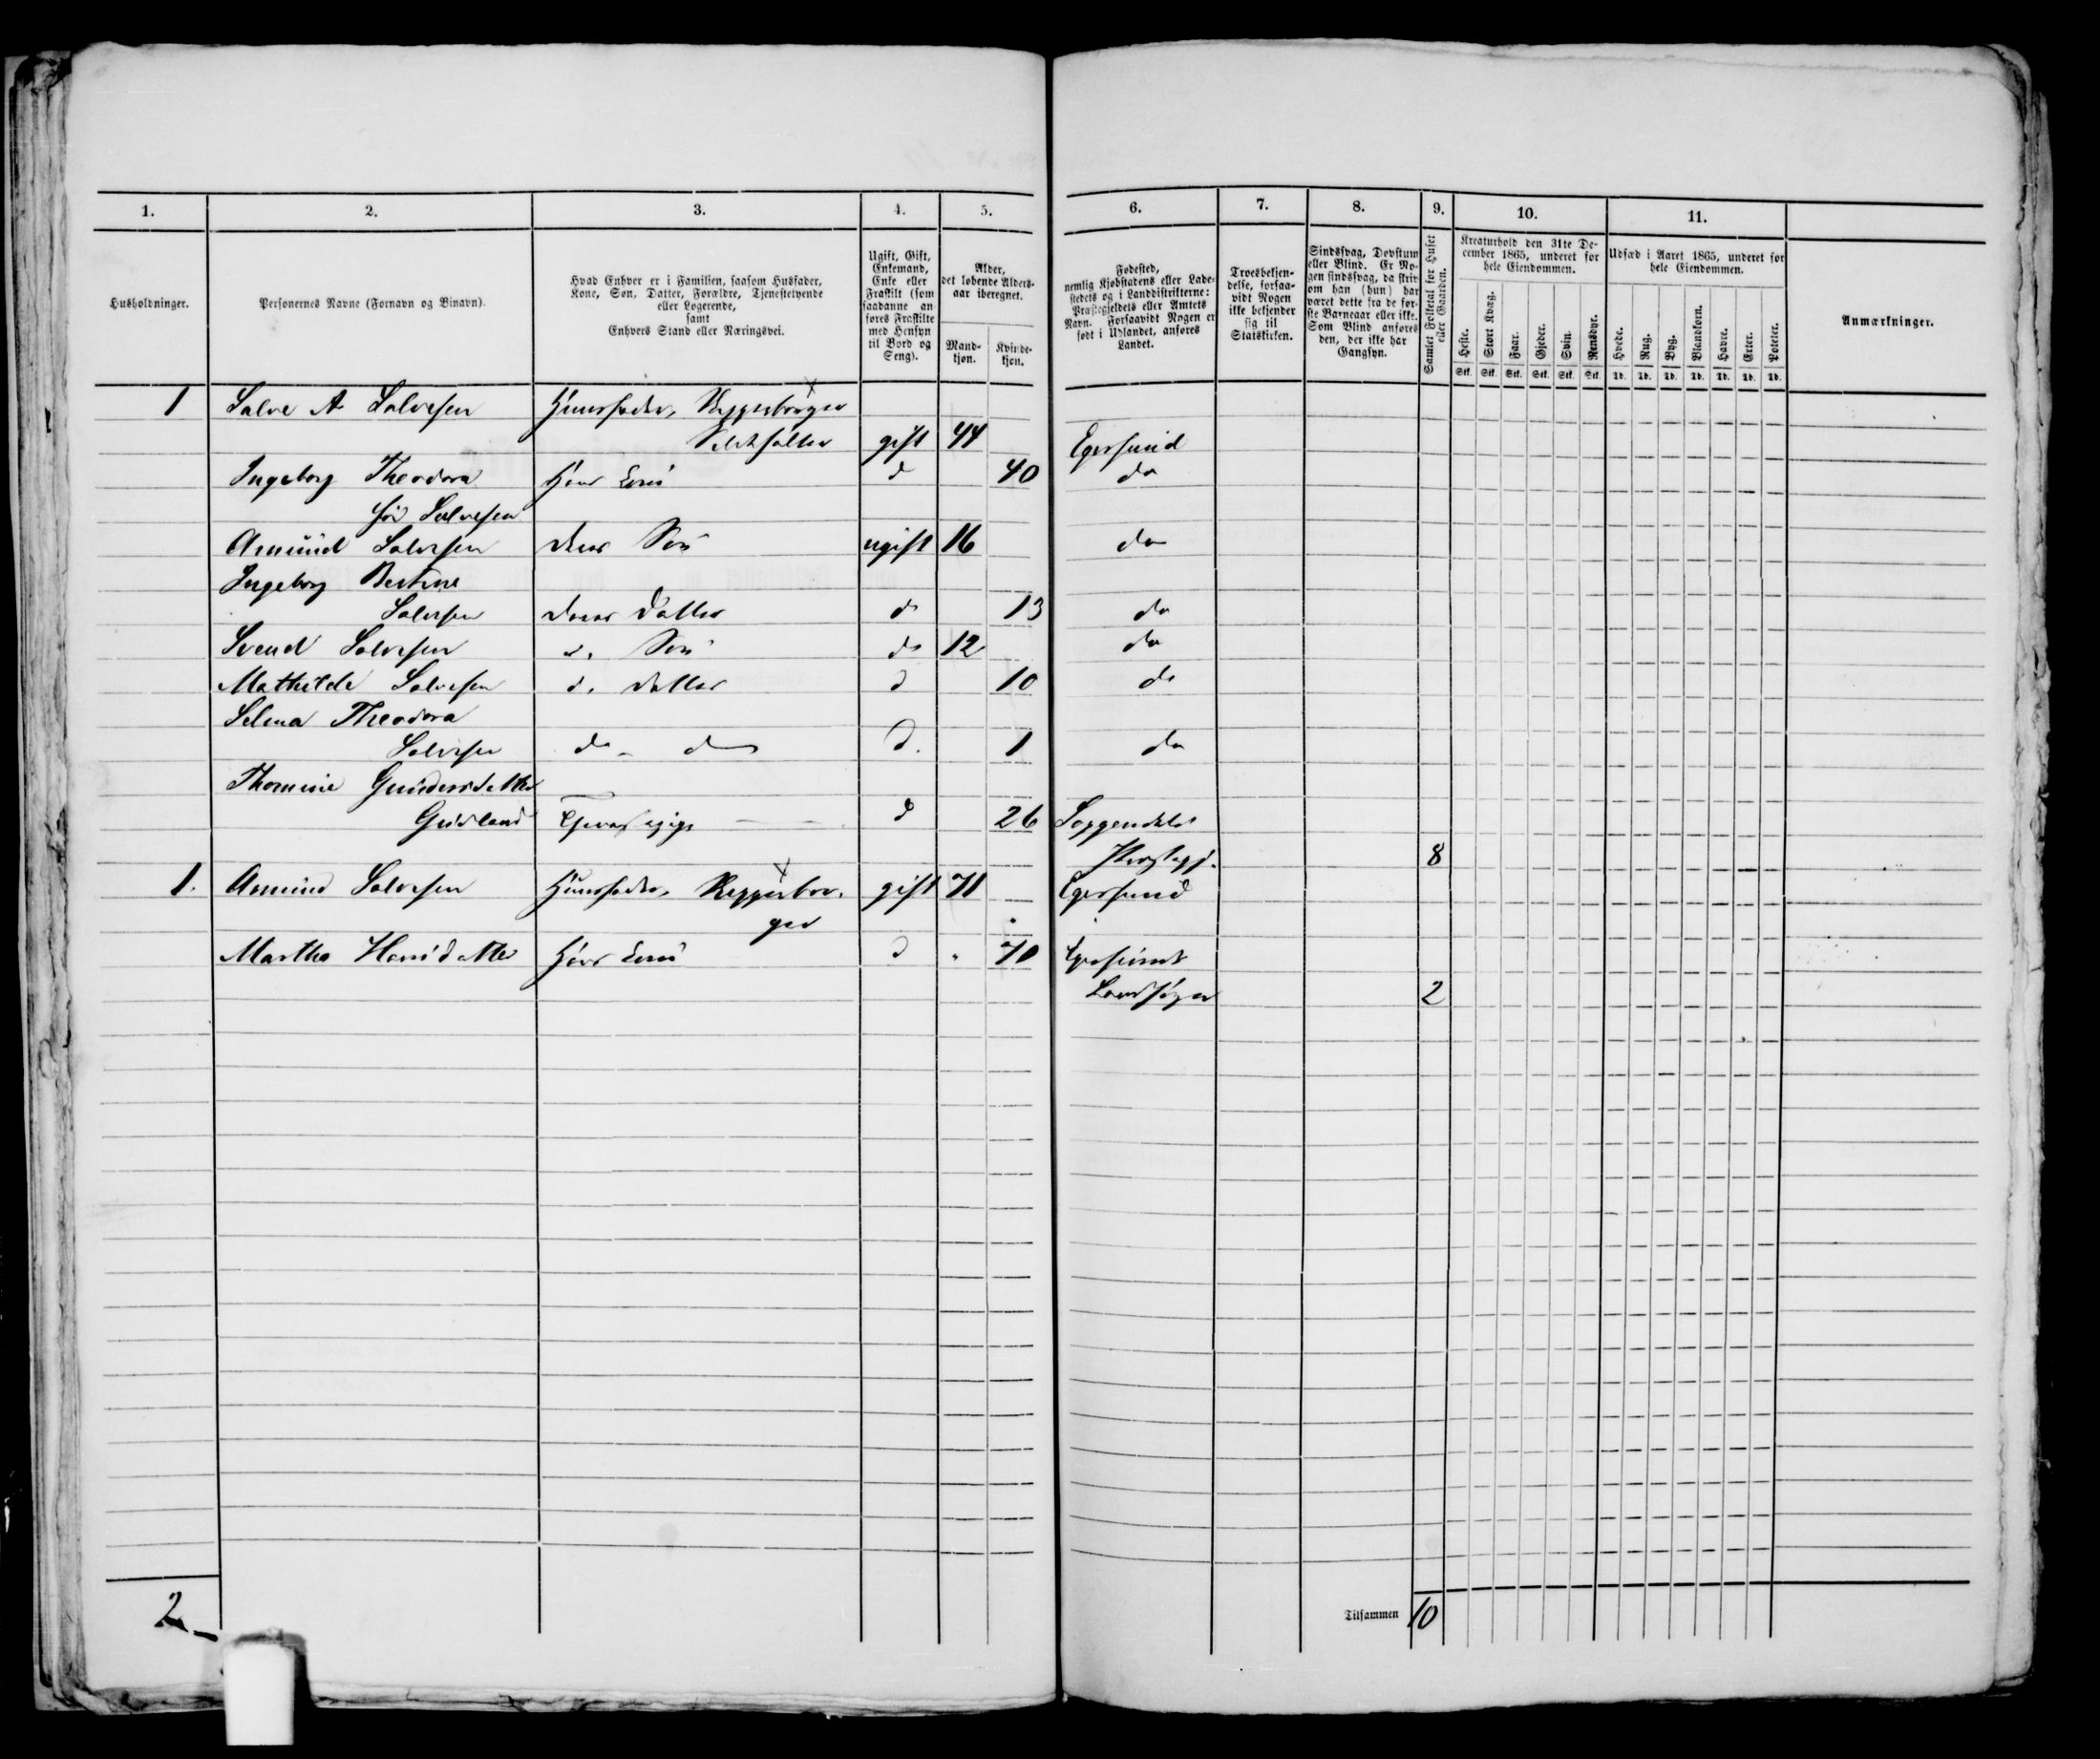 1. 2. 3. 4. 5. 6. 7. 8. 9. 10. 11.
Husholdninger.
Personernes Navne (Fornavn og Binavn).
Hvad Enhver er i Familien, saasom Husfader,
Kone, Søn, Datter, Forældre, Tjenestetyende
eller Logerende,
samt
Enhvers Stand eller Næringsvei.
Ugift, Gift,
Enkemand,
Enke eller
Fraskilt (som
saadanne an-
føres Fraskilte
med Hensyn
til Bord og
Seng).
Alder,
det løbende Alders-
aar iberegnet.
Mand-
kjøn.
Kvinde-
kjøn.
Fødested,
nemlig Kjøbstadens eller Lade-
stedets og i Landdistrikterne:
Præstegjeldets eller Amtets
Navn. Forsaavidt Nogen er
født i Udlandet, anføres
Landet.
Troesbekjen-
delse, forsaa-
vidt Nogen
ikke bekjender
sig til
Statskirken.
Sindssvag, Døvstum
eller Blind. Er No-
gen sindssvag, da skriv
om han (hun) har
været dette fra de før-
ste Barneaar eller ikke.
Som Blind anføres
den, der ikke har
Gangsyn.
Samlet Folketal for Huset
eller Gaarden.
Kreaturhold den 31te De-
cember 1865, underet for
hele Eiendommen.
Heste. Stort Kvæg. Faar. Gjeder. Svin. Rensdyr.
Stk. Stk. Stk. Stk. Stk. Stk.
Udsæd i Aaret 1865, underet for
hele Eiendommen.
Hvede. Rug. Byg. Blandkorn. Havre. Erter. Poteter.
Td. Td. Td. Td. Td. Td. Td.
Anmærkninger.
1 Salve A Salvesen Huusfader,
gift 44 Egersund
Ingeborg Theodora Hans Kone d 40 do
fød Salvesen
Asmund Salvesen deres Søn ugift 16 do
Ingeborg Bertine
Salvesen deres Datter do 13 do
Svend Salvesen d. Søn do 12 do
Mathilde Salvesen d. Datter d 10 do
Selma Theodora
Salvesen do do d. 1 do
Thomine Gundersdatter
Tjenestepige d 26 Soggendals
Præstegj. 8
1. Asmund Salvesen Huusfader, Skipperbor- gift 71 Egersund
ger
Martha Hansdatter Hans Kone d 70 Egersunds
Landsogn 2
2
Tilsammen 10